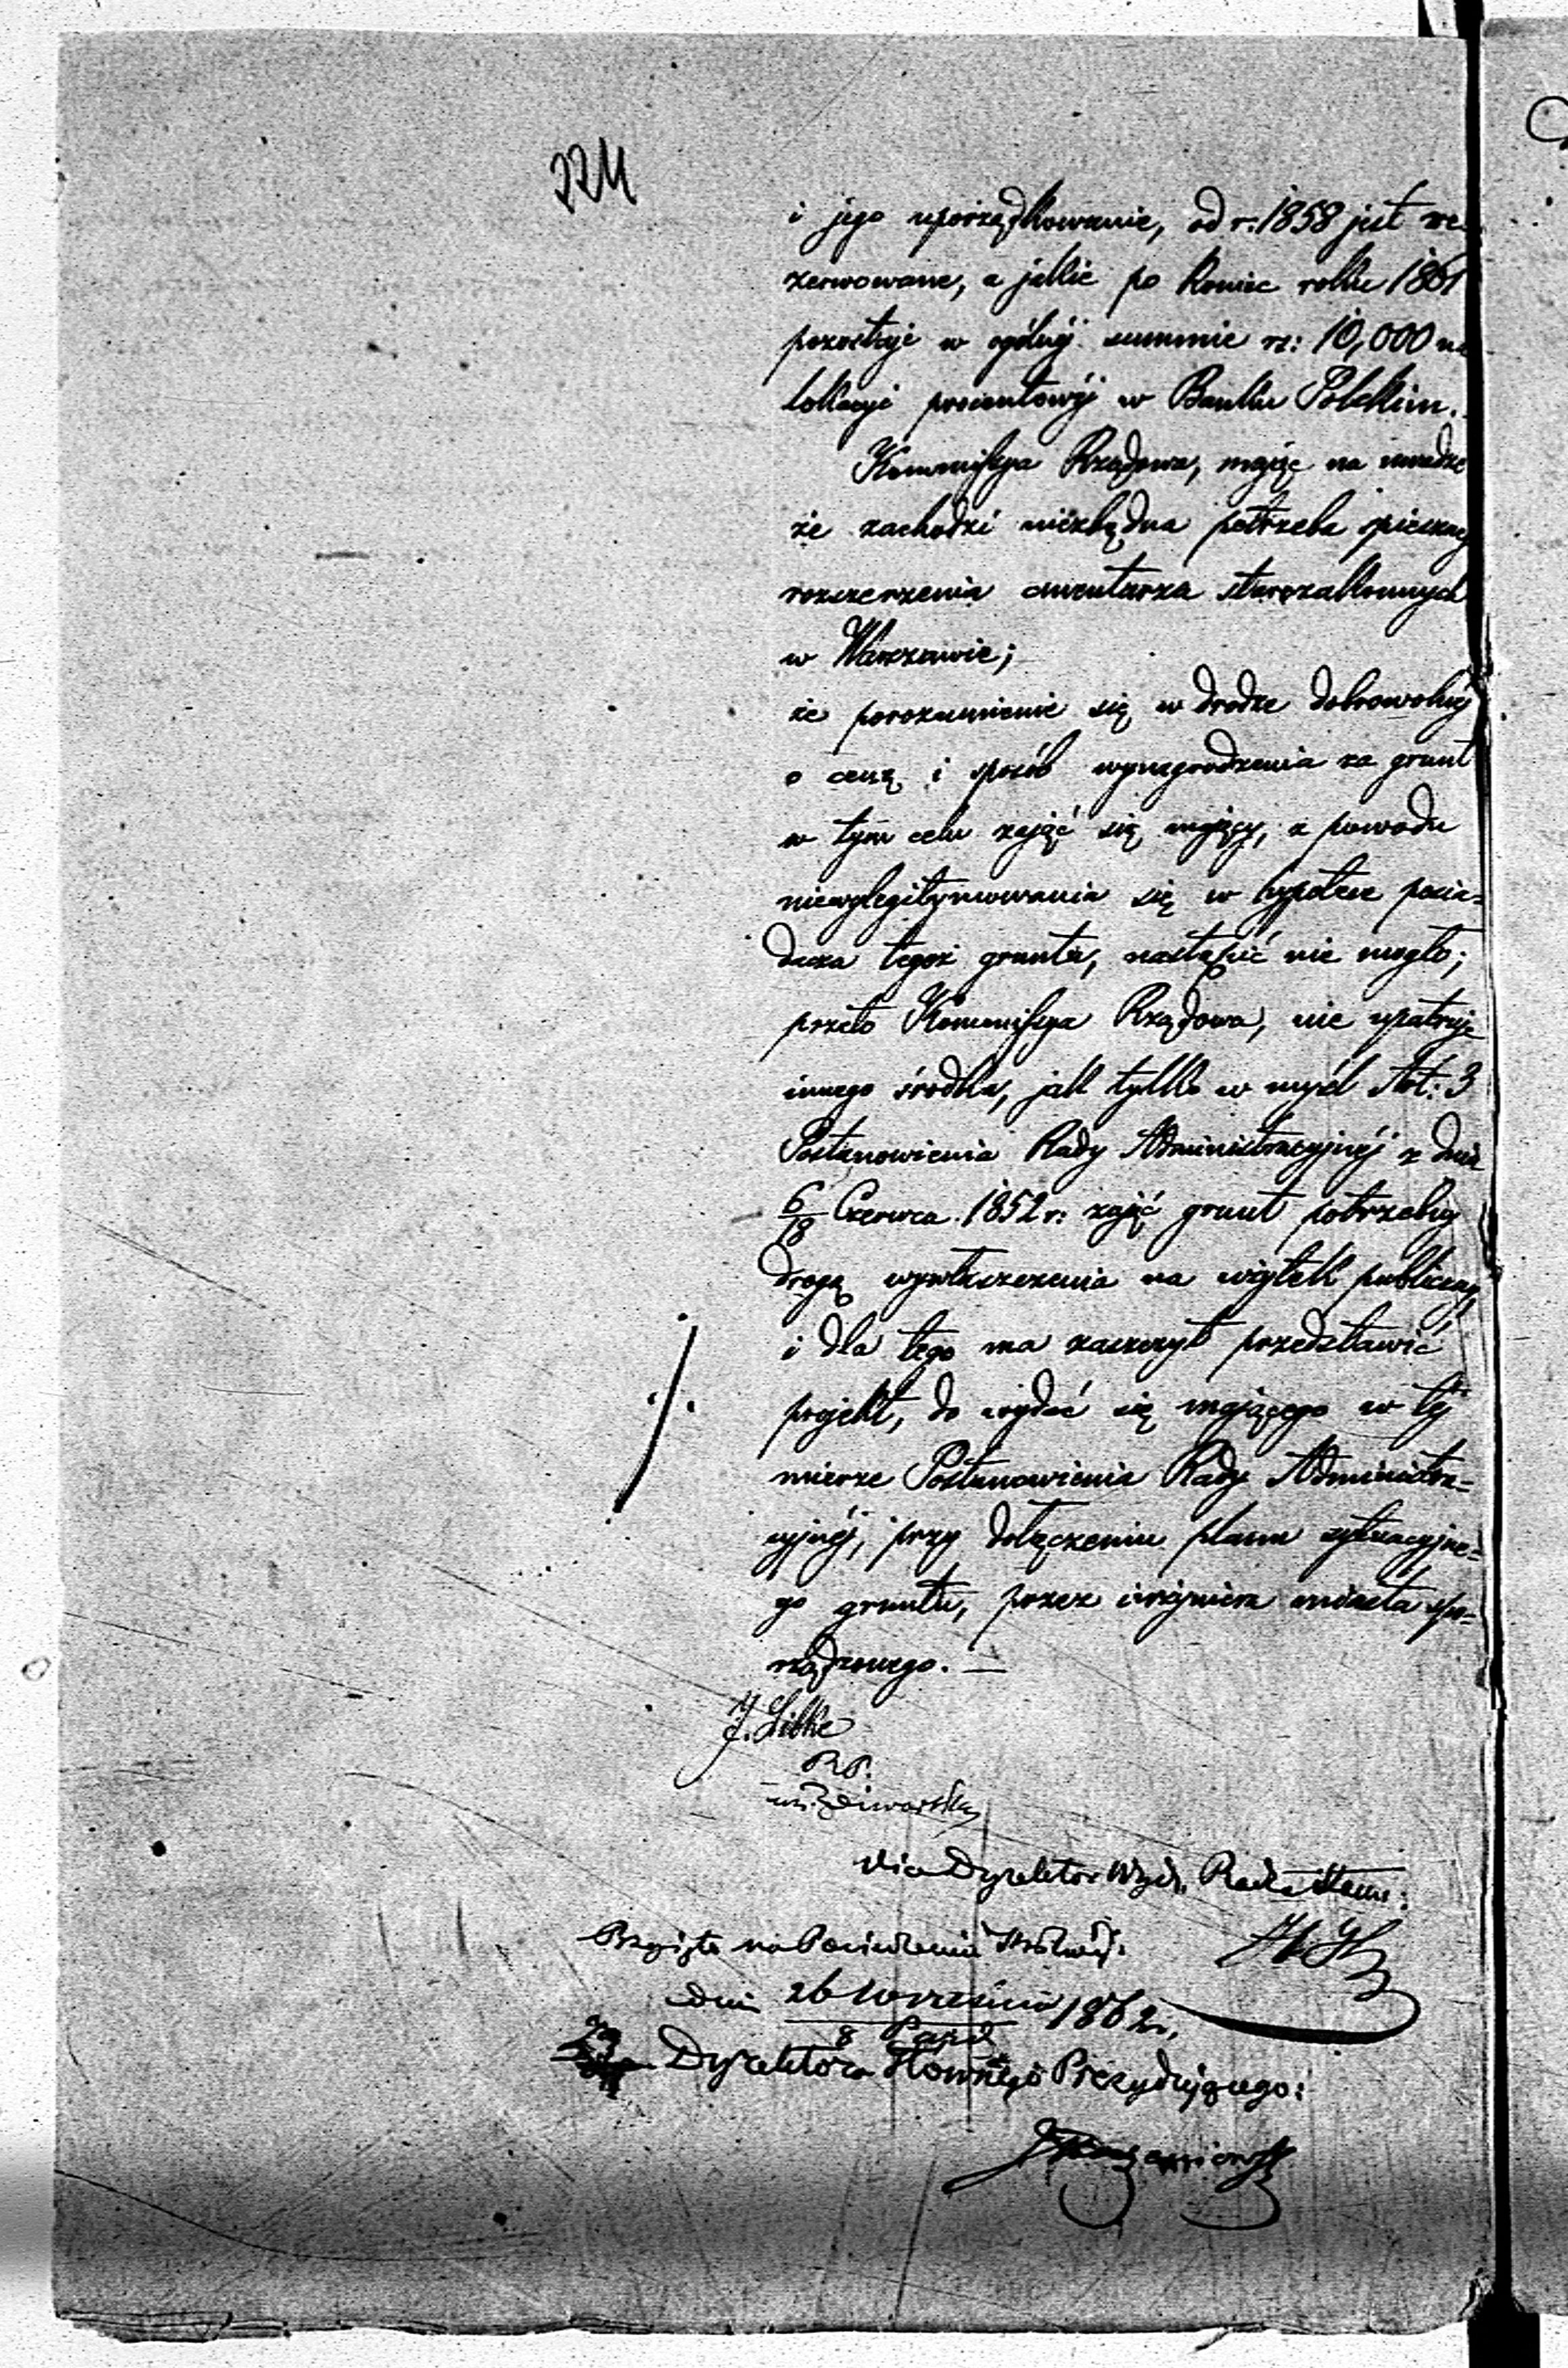 224
i jego uporządkowanie, od r. 1858 jest re-
zerwowane, a jakie po koniec roku 1861
pozostaje w ogólnéj summie rs: 10,000 na
lokacyi procentowéj w Banku Polskim.
Kommissya Rządowa, mając na uwadze
że zachodzi niezbędna potrzeba spieszneg
rozszerzenia cmentarza starozakonnych
w Warszawie;
że porozumienie się w drodze dobrowolnéj
o cenę i sposób wynagrodzenia za grunt
w tym celu zająć się mający, z powodu
niewylegitymowania się w hypotece posia-
dacza tegoż gruntu, nastąpić nie mogło;
przeto Kommissya Rządowa, nie upatruje
innego środka, jak tylko w myśl Art: 3
Postanowienia Rady Administracyjnéj z dnia
6/18 Czerwca 1852 r: zająć grunt potrzebny
drogą wywłaszczenia na użytek publiczny,
i dla tego ma zaszczyt przedstawić
projekt, do wydać się mającego w téj
mierze Postanowienia Rady Administra-
cyjnéj, przy dołączeniu planu sytuacyjne-
go gruntu, przez inżyniera miasta spo-
rządzonego. —
J.
Vice Dyrektor Wydz. Radca Stanu:
Przyjęto na Posiedzeniu
dnia 26 Września / 8 Paźd 1862 r.
Dyrektora Głównego Prezydującego: